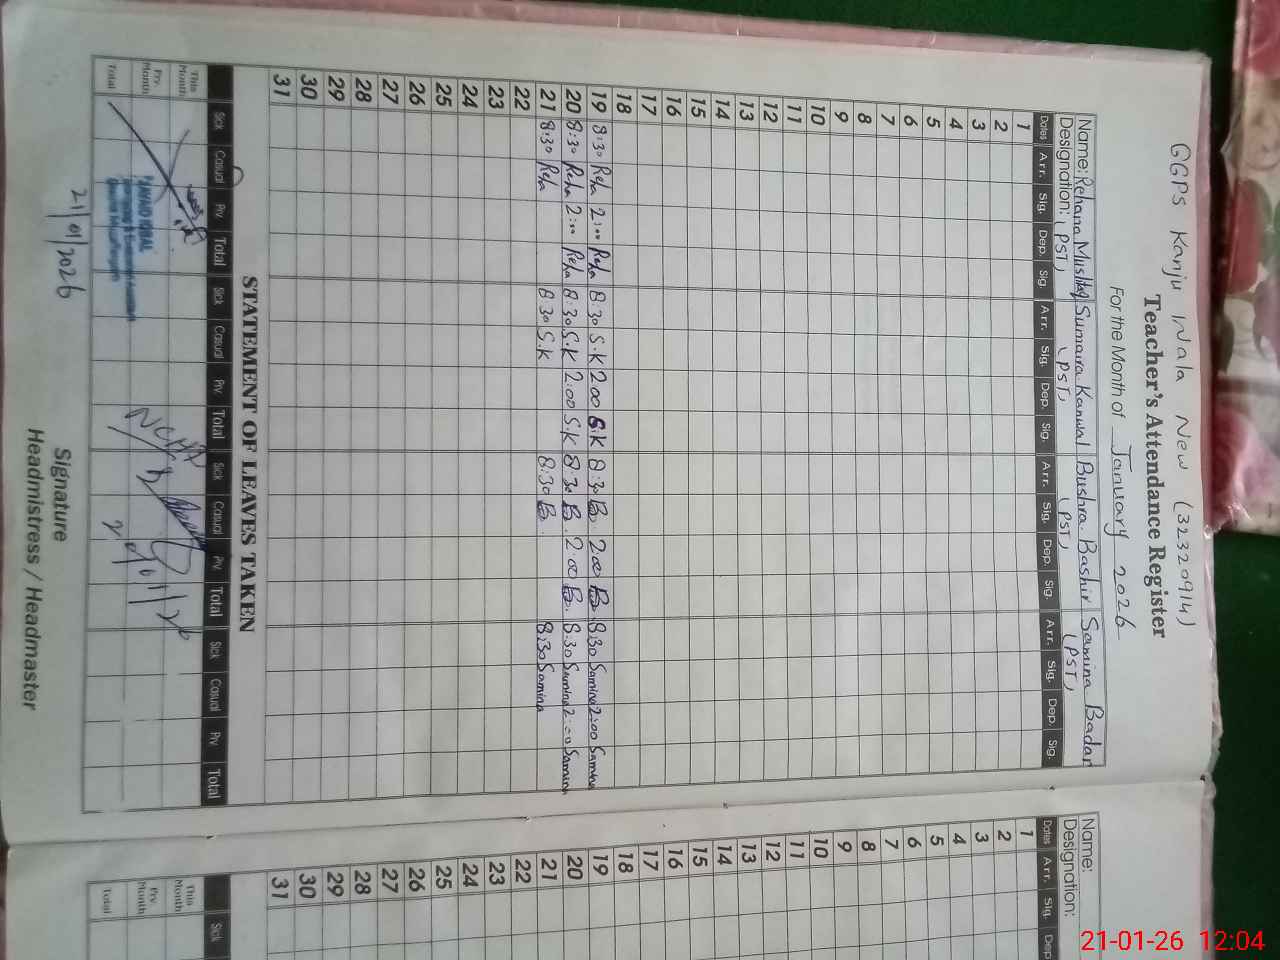 GGPS Kanju Wala New (32320914)
Teacher's Attendance Register
For the Month of January 2026
Name: Rehana Mushtaq Sumaira Kanwal Bushra Bashir Samina Badar
Designation: (PST) (PST) (PST) (PST)
Dates Arr. Sig. Dep. Sig. Arr. Sig. Dep. Sig. Arr. Sig. Dep. Sig. Arr. Sig. Dep. Sig.
1
2
3
4
5
6
7
8
9
10
11
12
13
14
15
16
17
18
19 8:30 Reha 2:00 Reha 8:30 S.K 2:00 S.K 8:30 B. 2:00 B. 8:30 Samina 2:00 Samina
20 8:30 Reha 2:00 Reha 8:30 S.K 2:00 S.K 8:30 B. 2:00 B. 8:30 Samina 2:00 Samina
21 8:30 Reha 8:30 S.K 8:30 B. 8:30 Samina
22
23
24
25
26
27
28
29
30
31
STATEMENT OF LEAVES TAKEN
Sick Casual Prv Total Sick Casual Prv Total Sick Casual Prv Total Sick Casual Prv Total
This Month
Prv. Month
Total
21/01/2026
Signature
Headmistress / Headmaster
Name:
Designation:
Dates Arr. Sig. Dep
1
2
3
4
5
6
7
8
9
10
11
12
13
14
15
16
17
18
19
20
21
22
23
24
25
26
27
28
29
30
31
Sick
This Month
Prv. Month
Total
21-01-26 12:04